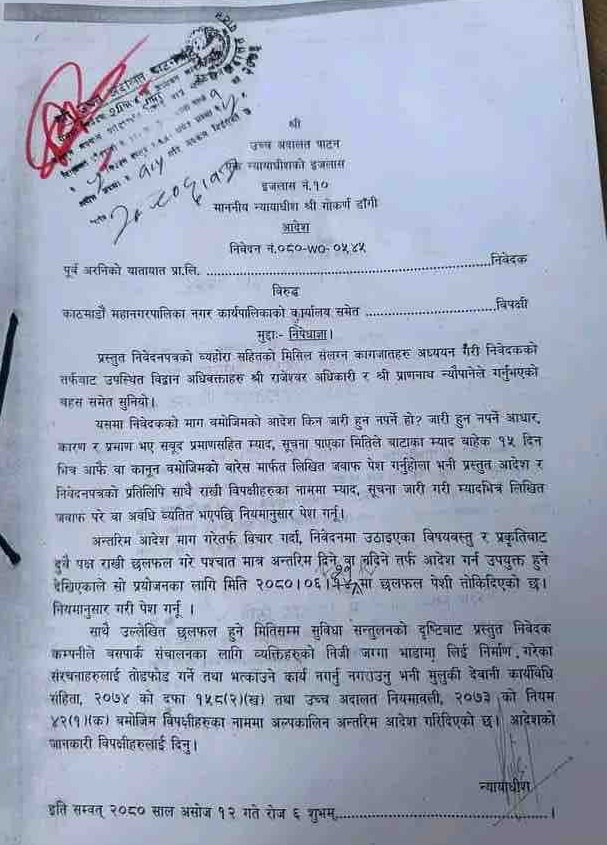 उच्च अदालत पाटन
श्री
उच्च अदालत पाटन
एक न्यायाधीशको इजलास
इजलास नं.१०
माननीय न्यायाधीश श्री गोकर्ण डाँगी
आदेश
निवेदन नं.०८०-WO-०५४५
पूर्व अरनिको यातायात प्रा.लि. ......................................................निवेदक
विरुद्ध
काठमाडौं महानगरपालिका नगर कार्यपालिकाको कार्यालय समेत .........................विपक्षी
मुद्दाः- निषेधाज्ञा।
प्रस्तुत निवेदनपत्रको व्यहोरा सहितको मिसिल संलग्न कागजातहरु अध्ययन गरी निवेदकको
तर्फबाट उपस्थित विद्वान अधिवक्ताहरु श्री राजेश्वर अधिकारी र श्री प्राणनाथ न्यौपानेले गर्नुभएको
बहस समेत सुनियो।
यसमा निवेदकको माग बमोजिमको आदेश किन जारी हुन नपर्ने हो? जारी हुन नपर्ने आधार,
कारण र प्रमाण भए सबुद प्रमाणसहित म्याद, सूचना पाएका मितिले बाटाका म्याद बाहेक १५ दिन
भित्र आफै वा कानून बमोजिमको वारेस मार्फत लिखित जवाफ पेश गर्नुहोला भनी प्रस्तुत आदेश र
निवेदनपत्रको प्रतिलिपि साथै राखी विपक्षीहरुका नाममा म्याद, सूचना जारी गरी म्यादभित्र लिखित
जवाफ परे वा अवधि व्यतित भएपछि नियमानुसार पेश गर्नू।
अन्तरिम आदेश माग गरेतर्फ विचार गर्दा, निवेदनमा उठाइएका विषयवस्तु र प्रकृतिबाट
दुवै पक्ष राखी छलफल गरे पश्चात मात्र अन्तरिम दिने वा नदिने तर्फ आदेश गर्न उपयुक्त हुने
देखिएकाले सो प्रयोजनका लागि मिति २०८०।०६। मा छलफल पेशी तोकिदिएको छ।
नियमानुसार गरी पेश गर्नू ।
साथै उल्लेखित छलफल हुने मितिसम्म सुविधा सन्तुलनको दृष्टिबाट प्रस्तुत निवेदक
कम्पनीले बसपार्क संचालनका लागि व्यक्तिहरुको निजी जग्गा भाडामा लिई निर्माण गरेका
संरचनाहरुलाई तोडफोड गर्ने तथा भत्काउने कार्य नगर्नु नगराउनु भनी मुलुकी देवानी कार्यविधि
संहिता, २०७४ को दफा १५८(२)(ख) तथा उच्च अदालत नियमावली, २०७३ को नियम
४२(१)(क) बमोजिम विपक्षीहरुका नाममा अल्पकालिन अन्तरिम आदेश गरिदिएको छ। आदेशको
जानकारी विपक्षीहरुलाई दिनु।
न्यायाधीश
इति सम्वत् २०८० साल असोज १२ गते रोज ६ शुभम्......................................।